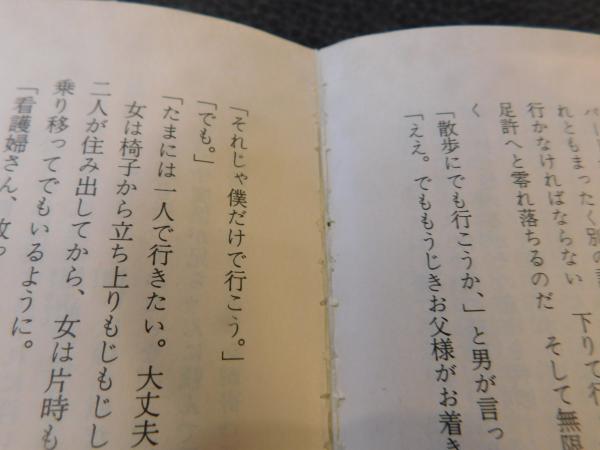 れともまったく別の
行かなければならない　下りて行
足許へと零れ落ちるのだ　そして無限
く
「散歩にでも行こうか、」と男が言っ
「ええ。でももうじきお父様がお着き
「それじゃ僕だけで行こう。」
「でも。」
「たまには一人で行きたい。大丈夫
女は椅子から立ち上りもじもじし
二人が住み出してから、女は片時も
乗り移ってでもいるように。
「看護婦さん、